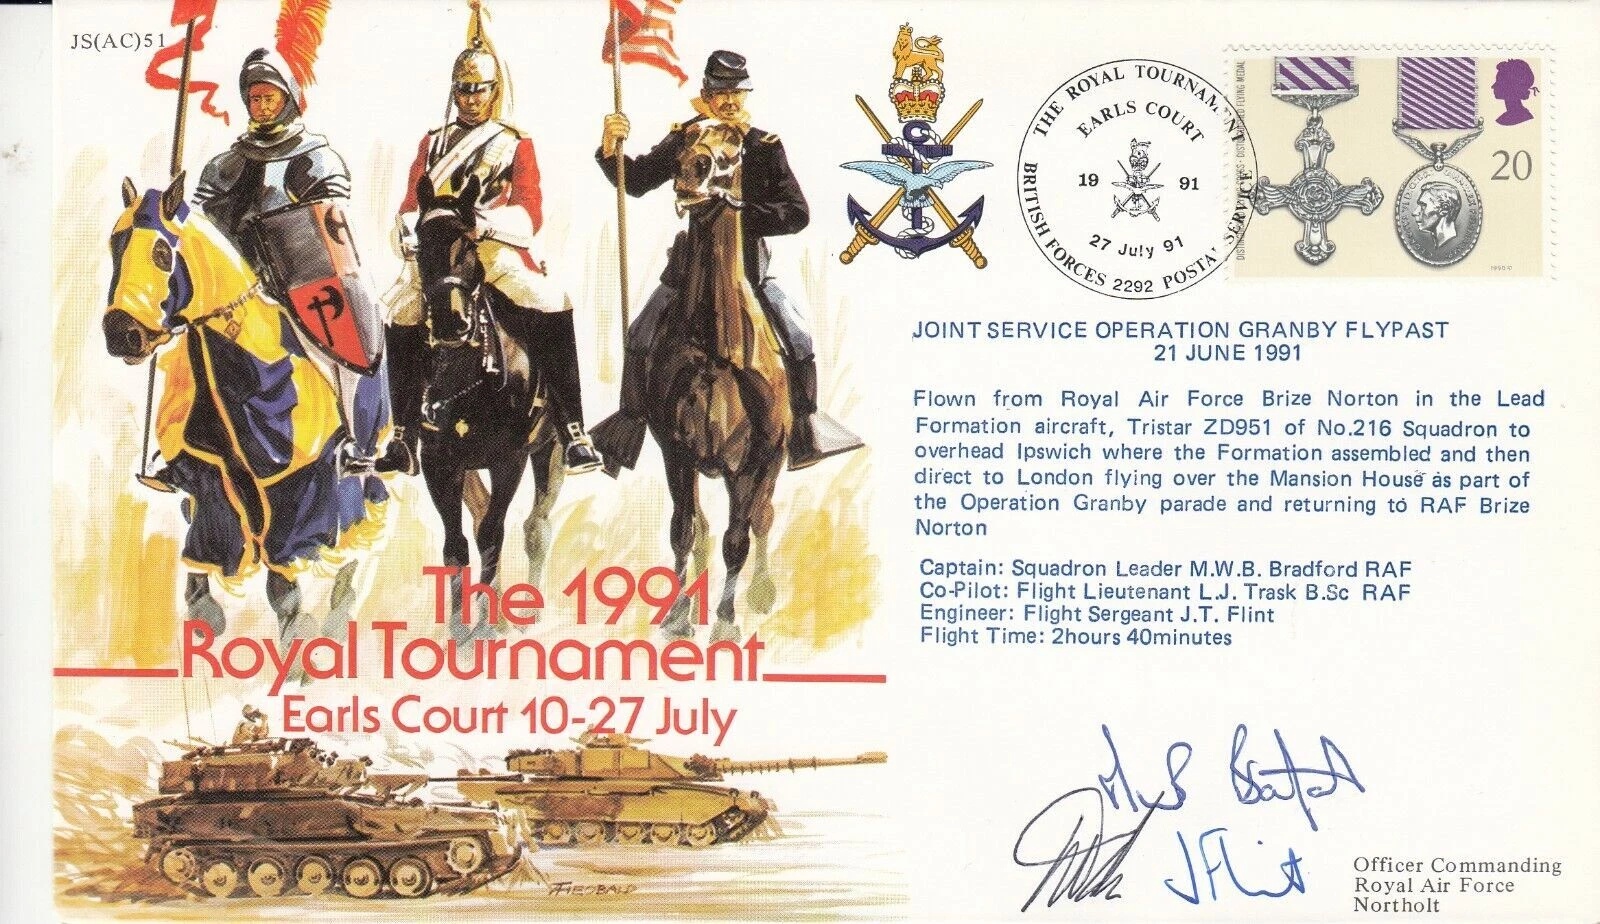 JS(AC)51
THE ROYAL TOURNAMENT
EARLS COURT
19 91
27 July 91
BRITISH FORCES 2292 POSTAL SERVICE
20
JOINT SERVICE OPERATION GRANBY FLYPAST
21 JUNE 1991
Flown from Royal Air Force Brize Norton in the Lead
Formation aircraft, Tristar ZD951 of No.216 Squadron to
overhead Ipswich where the Formation assembled and then
direct to London flying over the Mansion House as part of
the Operation Granby parade and returning to RAF Brize
Norton
Captain: Squadron Leader M.W.B. Bradford RAF
Co-Pilot: Flight Lieutenant L.J. Trask B.Sc RAF
Engineer: Flight Sergeant J.T. Flint
Flight Time: 2hours 40minutes
The 1991
Royal Tournament
Earls Court 10-27 July
J Flint
Officer Commanding
Royal Air Force
Northolt